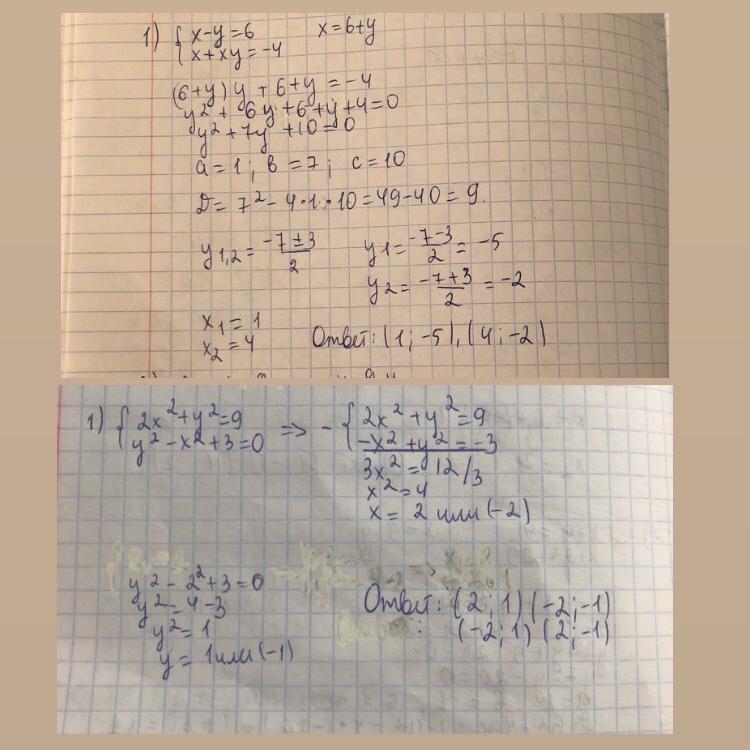 1) { x-y=6 x=6+y
x+xy=-4
(6+y)y+6+y=-4
y²+6y+6+y+4=0
y²+7y+10=0
a=1; в=7; c=10
D=7²-4·1·10=49-40=9.
y1,2=(-7±3)/2 y1=(-7-3)/2=-5
y2=(-7+3)/2=-2
x1=1
x2=4 Ответ: (1;-5),(4;-2)
1) { 2x²+y²=9 => - { 2x²+y²=9
y²-x²+3=0 -x²+y²=-3
3x²=12/3
x²=4
x=2 или (-2)
y²-2²+3=0
y²=4-3
y²=1
y=1 или (-1)
Ответ: (2;1)(-2;-1)
(-2;1)(2;-1)